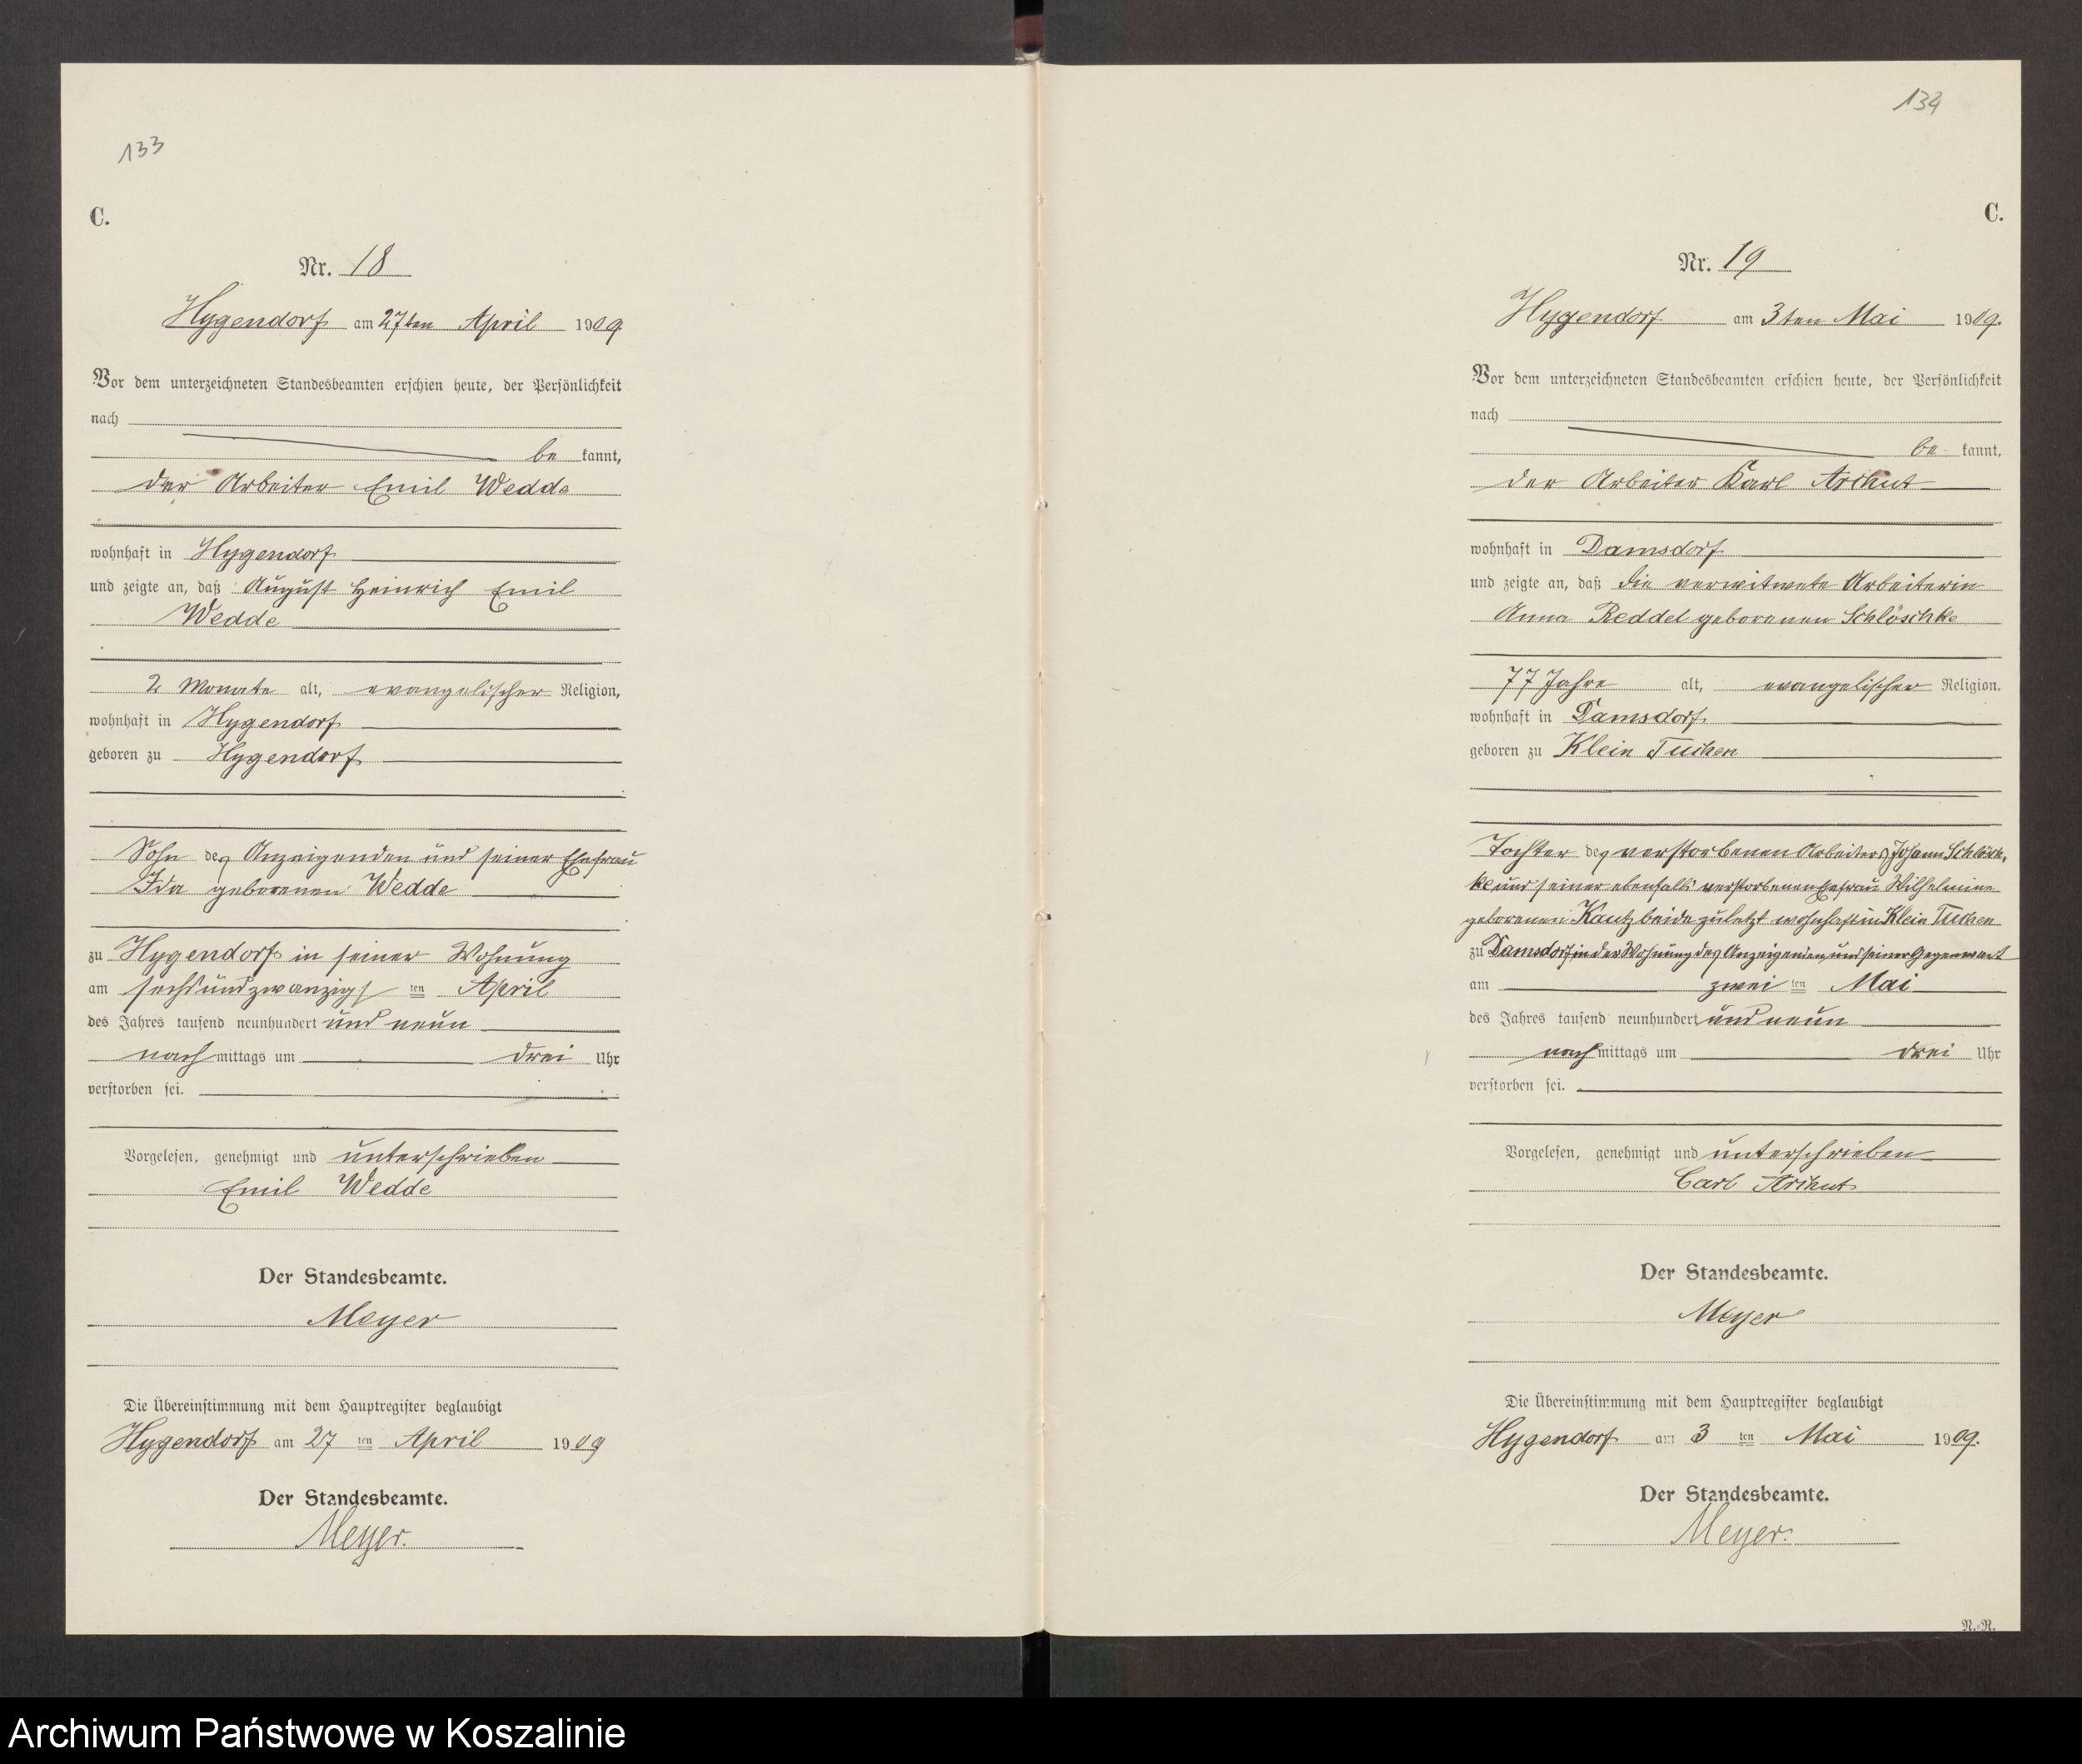 133
C.
Nr. 18
Hygendorf am 27ten April 1909
Vor dem unterzeichneten Standesbeamten erschien heute, der Persönlichkeit
nach
be kannt,
der Arbeiter Emil Wedde
wohnhaft in Hygendorf
und zeigte an, daß August Heinrich Emil
Wedde
2 Monate alt, evangelischer Religion,
wohnhaft in Hygendorf
geboren zu Hygendorf
Sohn des Anzeigenden und seiner Ehefrau
Ida geborenen Wedde
zu Hygendorf in seiner Wohnung
am sechsundzwanzigsten April
des Jahres tausend neunhundert und neun
nach mittags um drei Uhr
verstorben sei.
Vorgelesen, genehmigt und unterschrieben
Emil Wedde
Der Standesbeamte.
Meyer
Die Übereinstimmung mit dem Hauptregister beglaubigt
Hygendorf am 27 ten April 1909
Der Standesbeamte.
Meyer.
134
C.
Nr. 19
Hygendorf am 3ten Mai 1909.
Vor dem unterzeichneten Standesbeamten erschien heute, der Persönlichkeit
nach
be kannt,
der Arbeiter Karl
wohnhaft in Damsdorf
und zeigte an, daß die verwitwete Arbeiterin
Anna Reddel geborenen Schlöschke
77 Jahre alt, evangelischer Religion.
wohnhaft in Damsdorf
geboren zu Klein Tuchen
Tochter des verstorbenen Arbeiters Johann Schlösch-
ke und seiner ebenfalls verstorbenen Ehefrau Wilhelmine
geborenen Kautz beide zuletzt wohnhaft in Klein Tuchen
zu Damsdorf in der Wohnung des Anzeigenden und seiner Gegenwart
am zwei ten Mai
des Jahres tausend neunhundert und neun
nach mittags um drei Uhr
verstorben sei.
Vorgelesen, genehmigt und unterschrieben
Carl
Der Standesbeamte.
Meyer
Die Übereinstimmung mit dem Hauptregister beglaubigt
Hygendorf am 3 ten Mai 1909.
Der Standesbeamte.
Meyer.
R.-R.
Archiwum Państwowe w Koszalinie